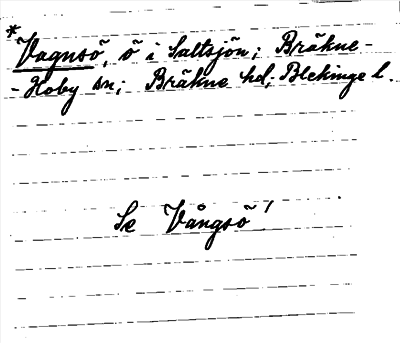 *
Vagnsö, ö i Saltsjön; Bräkne-
-Hoby sn; Bräkne hd; Blekinge l.
Se Vångsö!